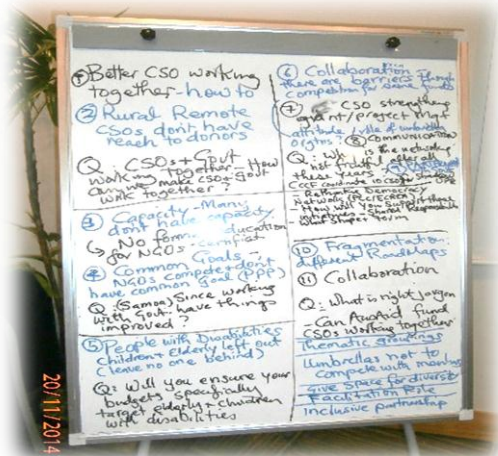 ① Better CSO working
together - how to
② Rural Remote
CSOs don't have
reach to donors
Q: CSOs + Govt
working together - How
can we make CSO + Govt
work together?
3 Capacity - Many
don't have capacity
↳ No formal education
for NGOs
④ Common Goals -
NGOs compete + don't
have common goal (PPP)
Q: (Samoa) Since working
with Govt. have things
improved?
⑤ People with Disabilities
Children + Elderly left out
(leave no one behind)
Q: Will you ensure your
budgets specifically
target elderly + children
with disabilities
⑥ Collaboration -
there are barriers though
competition for same funds
⑦ CSO strengthening
grant/project mgt
attitude / role of umbrella
orgtns. ⑧ COMMUNICATION
Q: Why is the network
not fruitful after all
these years
CCCF coordinate
Democracy
Network
How will you
Shared Responsible
What shape form
⑩ Fragmentation:
different Roadmaps
⑪ Collaboration
Q: What is right jargon
- Can AusAid fund
CSOs working together
Thematic groupings
Umbrellas not to
compete with members
Give space for diversity
Facilitation Role
inclusive partnership
20/11/2014